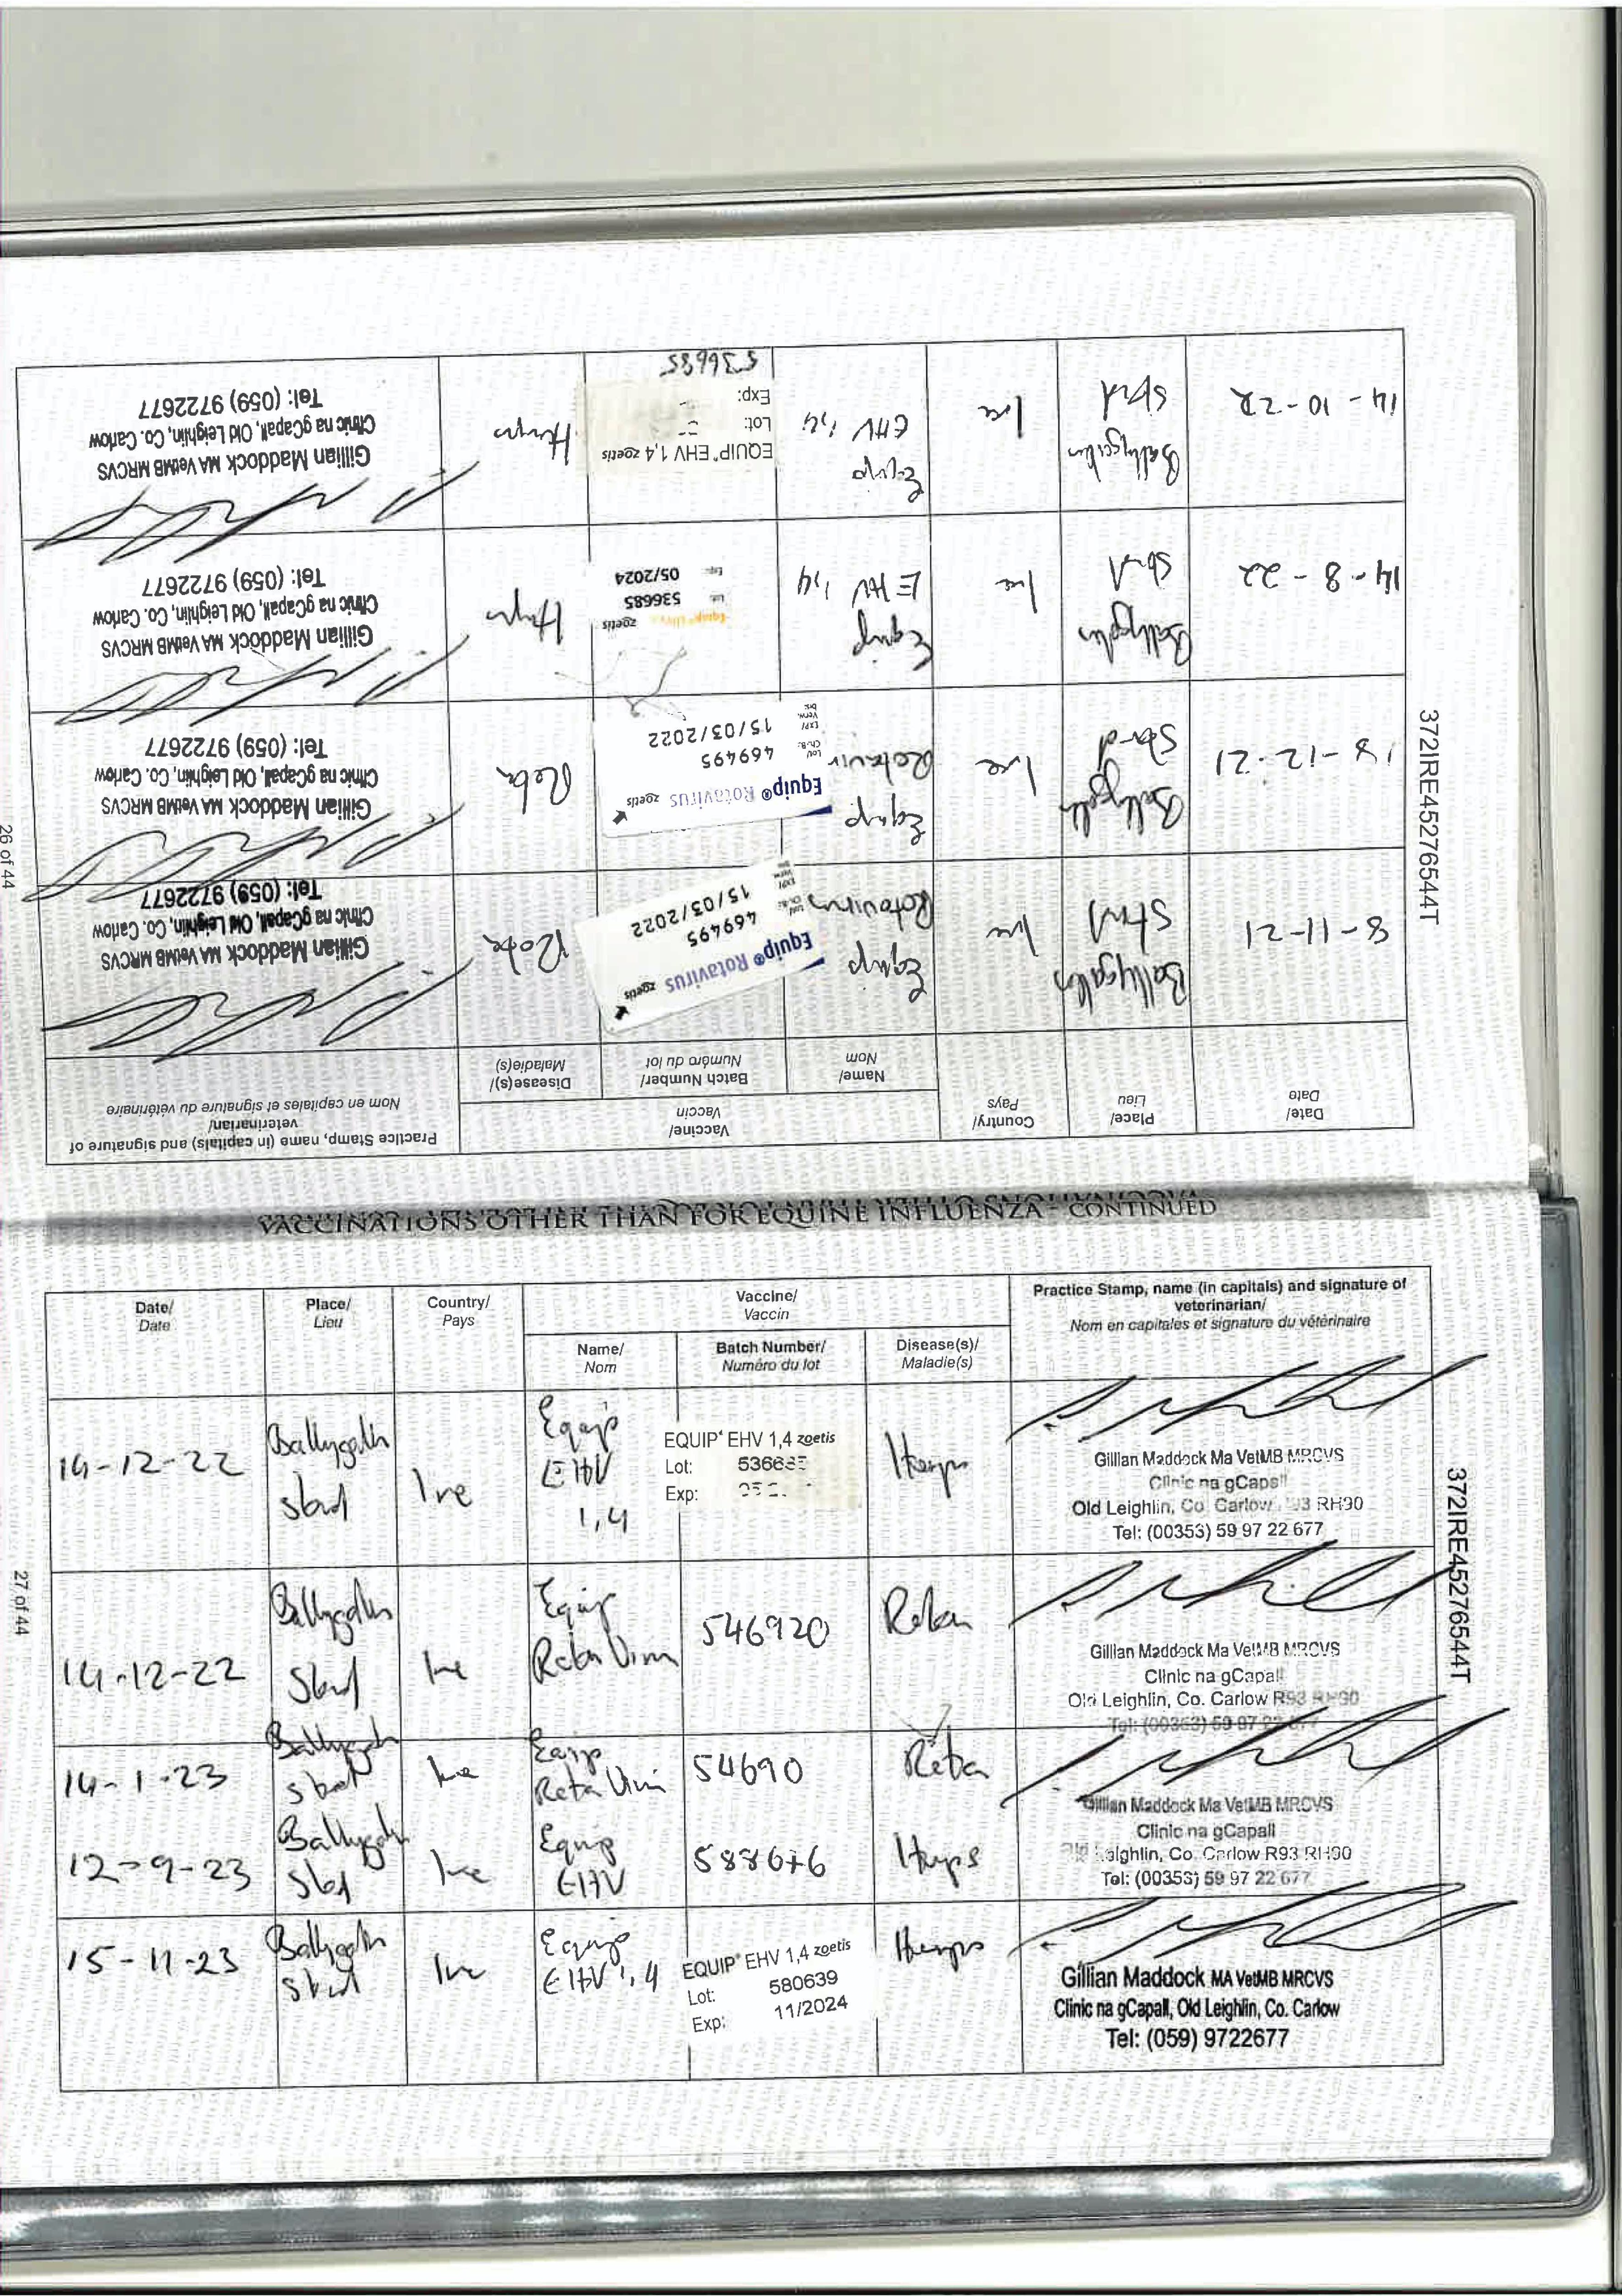 VACCINATIONS OTHER THAN FOR EQUINE INFLUENZA - CONTINUED
Date/ Date
Place/ Lieu
Country/ Pays
Vaccine/ Vaccin
Name/ Nom
Batch Number/ Numéro du lot
Disease(s)/ Maladie(s)
Practice Stamp, name (in capitals) and signature of veterinarian/
Nom en capitales et signature du vétérinaire
8-11-21
Stud
Ire
Equip
Rotavirus
Equip® Rotavirus zoetis
Lot/ Ch.-B.: 469495
EXP/ Verw. bis: 15/03/2022
Rota
Gillian Maddock MA VetMB MRCVS
Clinic na gCapall, Old Leighlin, Co. Carlow
Tel: (059) 9722677
18-12-21
Stud
Ire
Equip
Equip® Rotavirus zoetis
Lot/ Ch.-B.: 469495
EXP/ Verw. bis: 15/03/2022
Rota
Gillian Maddock MA VetMB MRCVS
Clinic na gCapall, Old Leighlin, Co. Carlow
Tel: (059) 9722677
14-8-22
Stud
Ire
Equip
EHV 1,4
zoetis
Lot: 536685
Exp: 05/2024
Gillian Maddock MA VetMB MRCVS
Clinic na gCapall, Old Leighlin, Co. Carlow
Tel: (059) 9722677
14-10-22
Stud
Ire
Equip
EHV 1,4
EQUIP® EHV 1,4 zoetis
Lot:
Exp:
536685
Gillian Maddock MA VetMB MRCVS
Clinic na gCapall, Old Leighlin, Co. Carlow
Tel: (059) 9722677
372IRE45276544T
26 of 44
Date/ Date
Place/ Lieu
Country/ Pays
Vaccine/ Vaccin
Name/ Nom
Batch Number/ Numéro du lot
Disease(s)/ Maladie(s)
Practice Stamp, name (in capitals) and signature of veterinarian/
Nom en capitales et signature du vétérinaire
14-12-22
Stud
Ire
Equip
EHV
1,4
EQUIP® EHV 1,4 zoetis
Lot:
Exp:
Gillian Maddock Ma VetMB MRCVS
Clinic na gCapall
Old Leighlin, Co. Carlow RH90
Tel: (00353) 59 97 22 677
14-12-22
Stud
Ire
Equip
546920
Gillian Maddock Ma VetMB MRCVS
Clinic na gCapall
Old Leighlin, Co. Carlow R93 RH90
14-1-23
Stud
Ire
Equip
54690
Rota
12-9-23
Stud
Ire
Equip
EHV
Gillian Maddock Ma VetMB MRCVS
Clinic na gCapall
Leighlin, Co. Carlow R93 RH90
Tel: (00353) 59 97 22 677
15-11-23
Stud
Ire
Equip
EHV 1,4
EQUIP® EHV 1,4 zoetis
Lot: 580639
Exp: 11/2024
Gillian Maddock MA VetMB MRCVS
Clinic na gCapall, Old Leighlin, Co. Carlow
Tel: (059) 9722677
372IRE45276544T
27 of 44